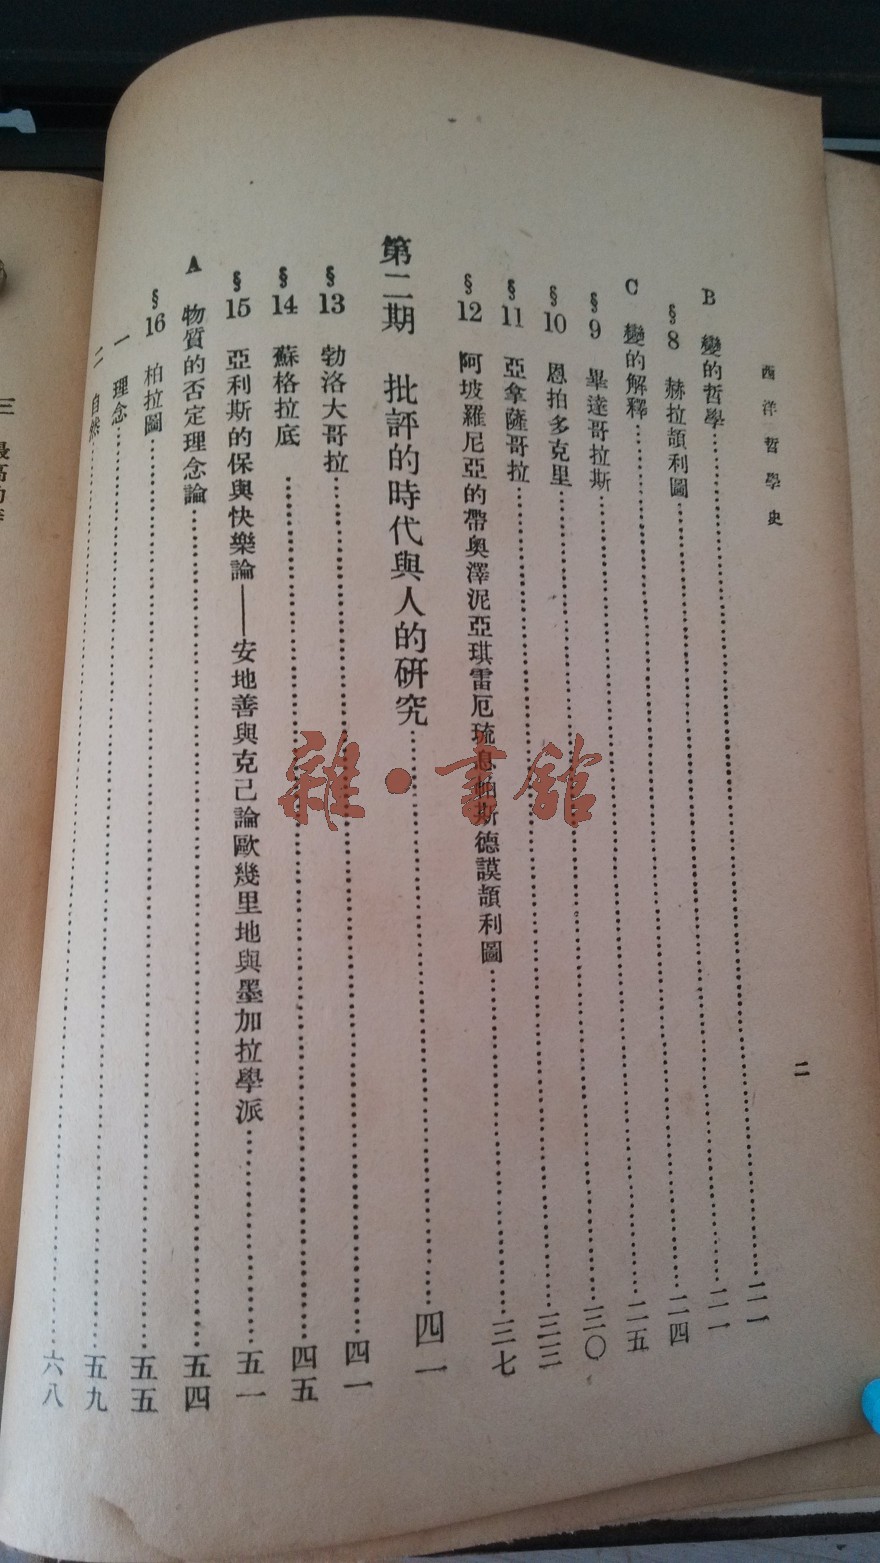 西洋哲學史
二
B 變的哲學……二一
§8 赫拉頡利圖……二一
C 變的解釋……二四
§9 畢達哥拉斯……二五
§10 恩拍多克里……三〇
§11 亞拿薩哥拉……三三
§12 阿坡羅尼亞的帶奧澤泥亞琪雷厄琉息帕斯德謨頡利圖……三七
第二期 批評的時代與人的研究……四一
§13 勃洛大哥拉……四一
§14 蘇格拉底……四五
§15 亞利斯的保與快樂論——安地善與克己論歐幾里地與墨加拉學派……五一
A 物質的否定理念論……五四
§16 柏拉圖……五五
一 理念……五九
二 自然……六八
三 最高的
雜·書館